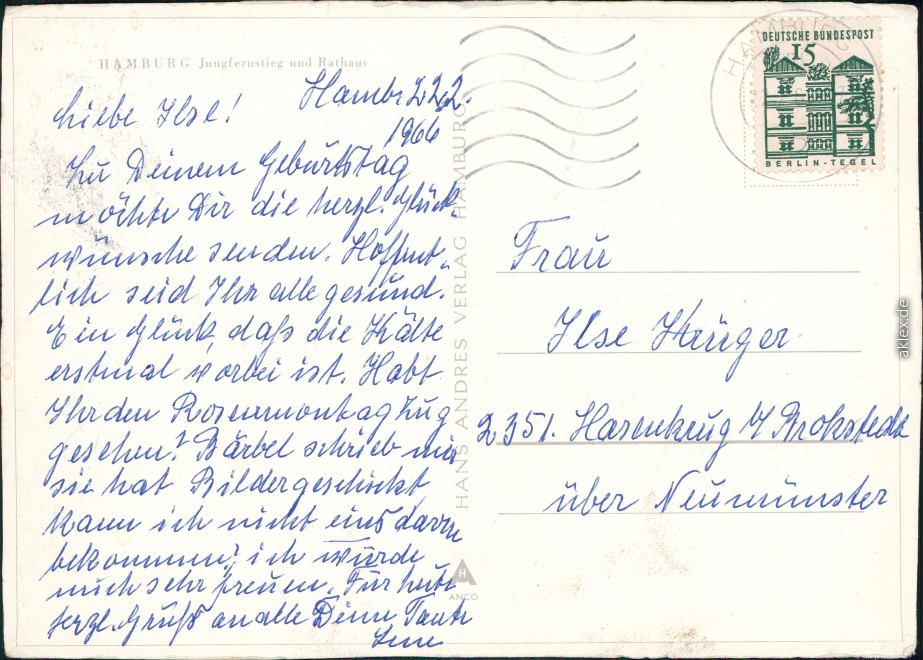 HAMBURG Jungfernstieg und Rathaus
Hambg 22.2.
1966
Liebe Ilse!
Zu Deinem Geburtstag
möchte Dir die herzl. Glück-
wünsche senden. Hoffent-
lich seid Ihr alle gesund.
Ein Glück, daß die Kälte
erstmal vorbei ist. Habt
Ihr den Rosenmontagzug
gesehen? Bärbel schrieb mir
sie hat Bilder geschickt
kann ich nicht eins davon
bekommen, ich würde
mich sehr freuen. Für heute
herzl. Gruß an alle Deine Tante
Lene
HANS ANDRES VERLAG HAMBURG
H
ANCO
HAMBURG
DEUTSCHE BUNDESPOST
15
BERLIN-TEGEL
Frau
Ilse Krüger
2351. Hasenkrug b/ Brokstedt
über Neumünster
aklex.de